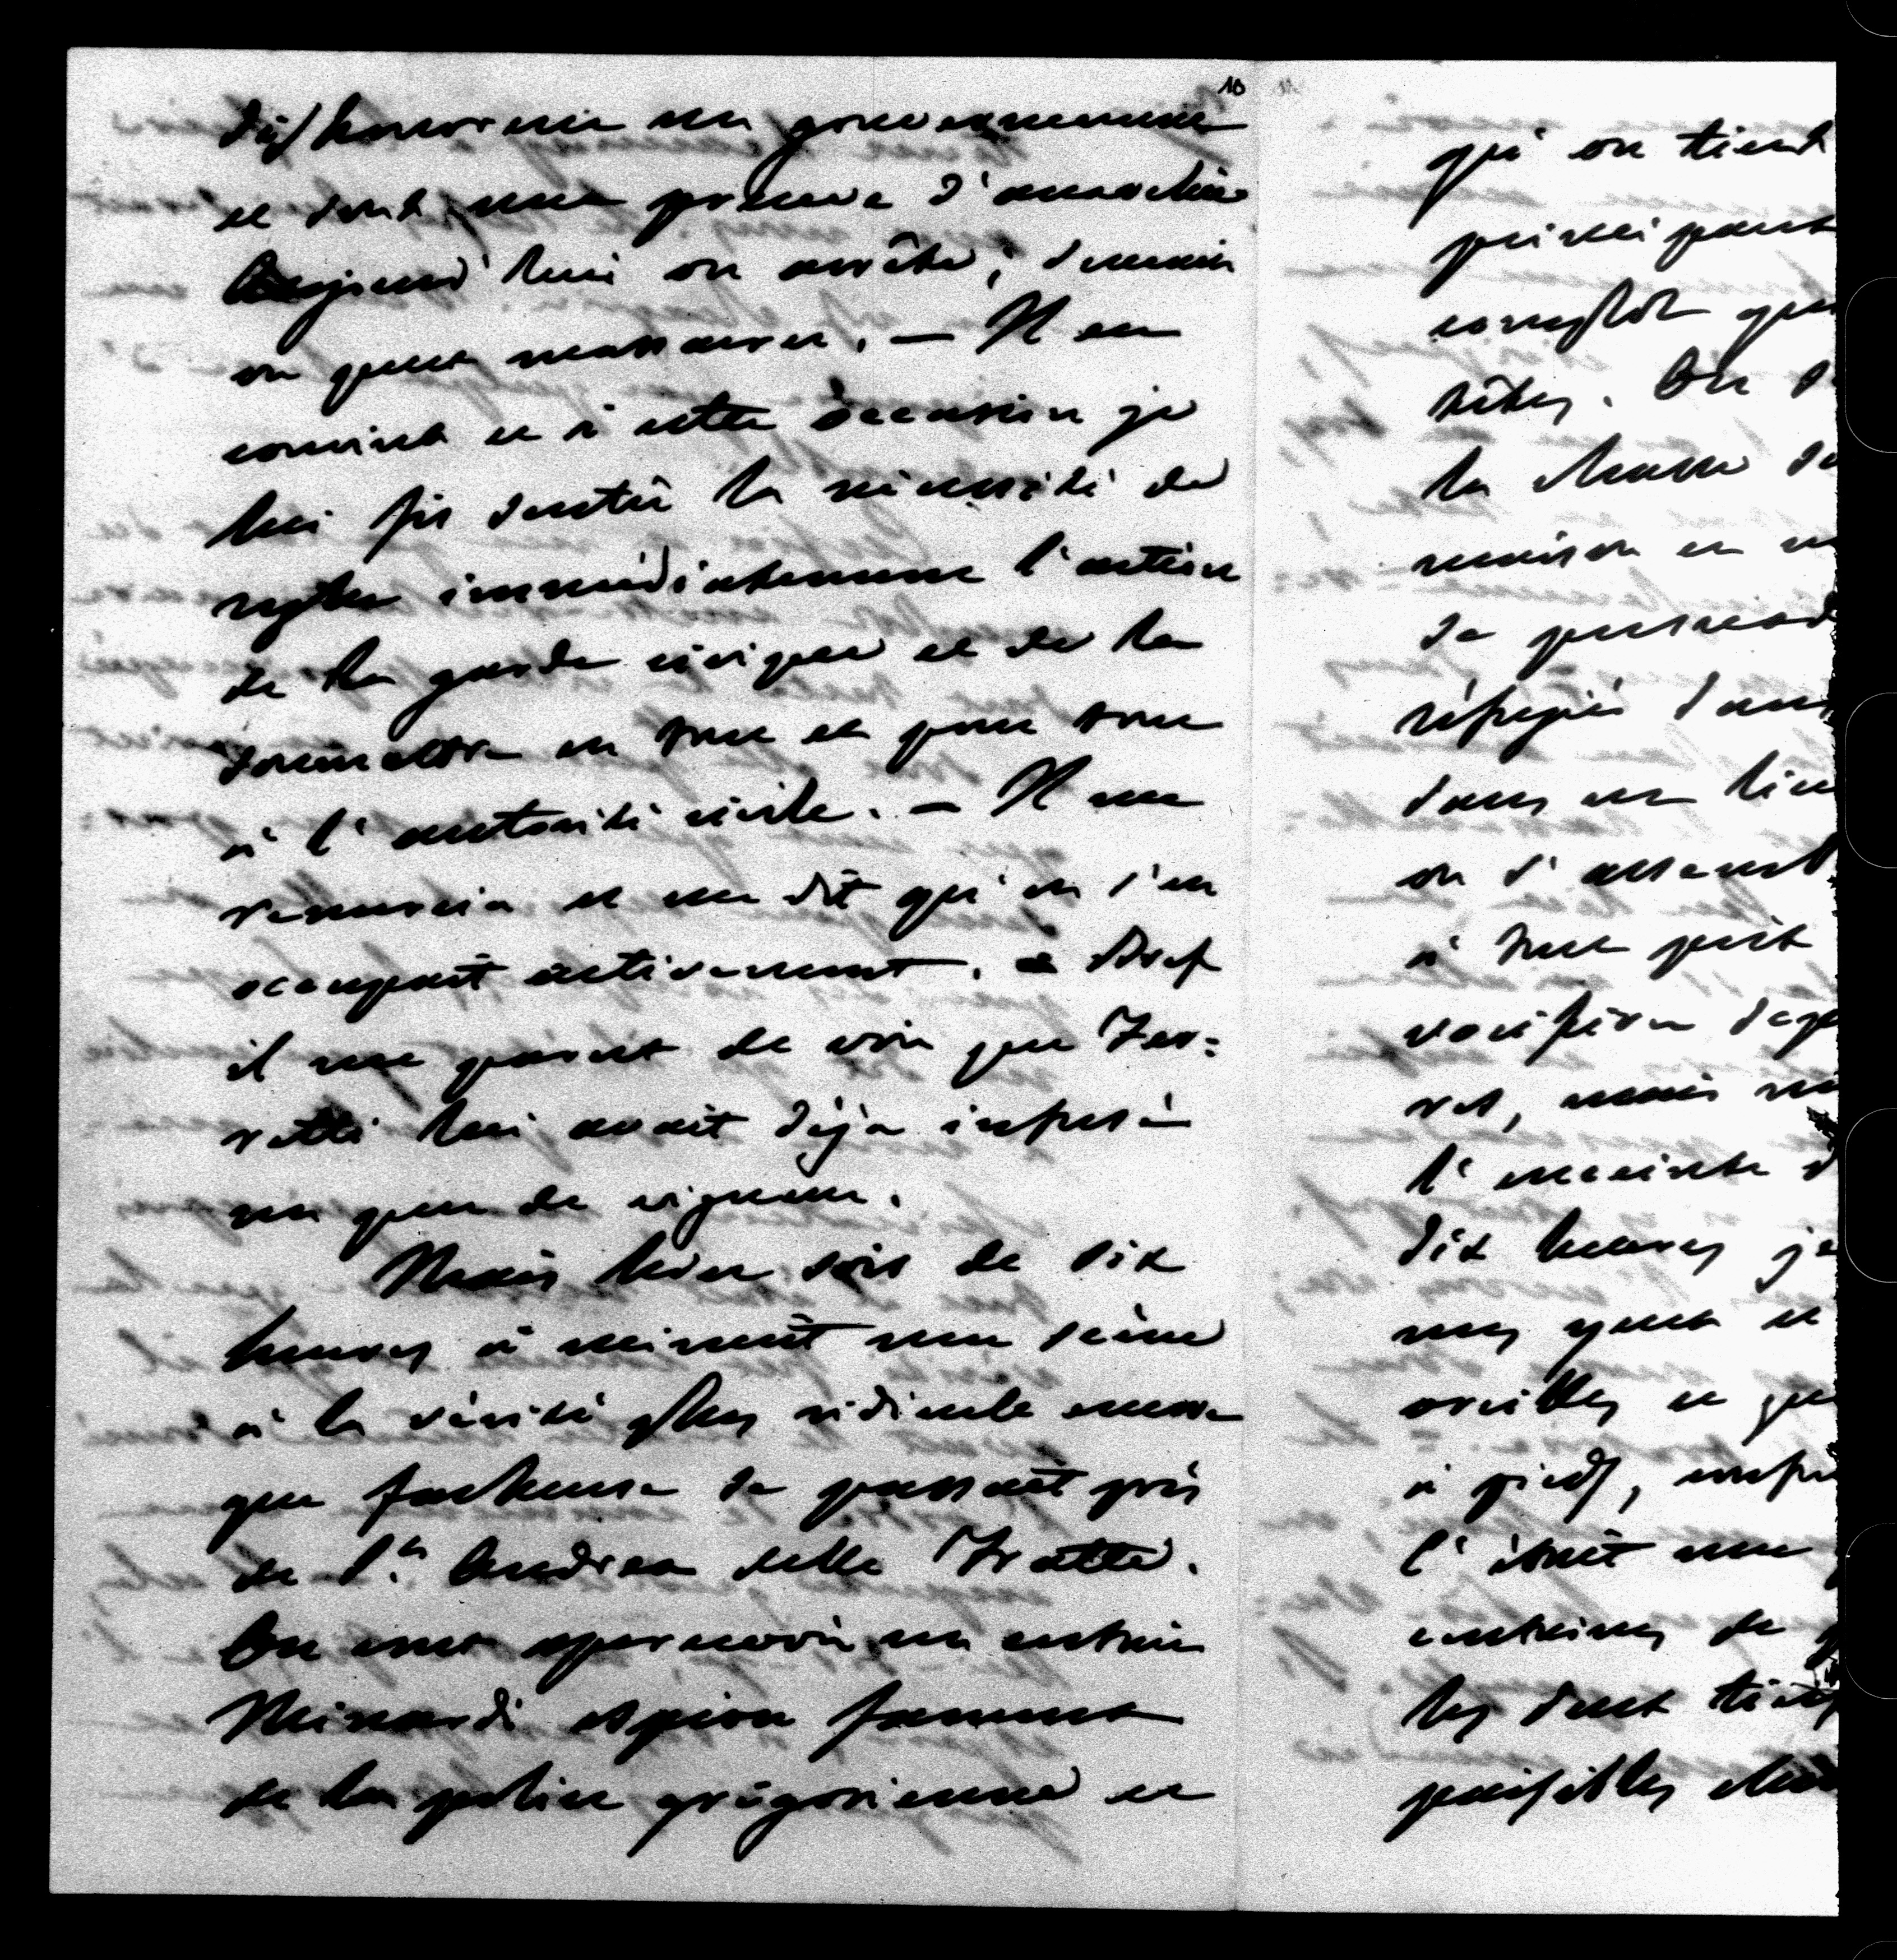 10
dishonorent un gouvernement
et sont une preuve d'anarchie
Aujourd'hui on arrête; demain
on peut massacrer. — Il en
convint et à cette occasion je
lui fis sentir la nécessité de
regler immédiatement l'action
de la garde civique et de la
soumettre en tout et pour tout
à l'autorité civile. — Il me
remercia et me dit qu'on s'en
occupait activement. Bref
il me parut de voir que Fer=
retti lui avait déjà infusé
un peu de vigueur.
Mais hier soir de dix
heures à minuit une scène
à la vérité plus ridicule encore
que facheuse se passait près
de S.t Andrea delle Fratte.
On crut apercevoir un certain
Minardi espion fameux
de la police grégorienne et
qu'on tient
principaux
complot
têtes. On
la chasse
maison en
se persuad
réfugié dans
dans un lieu
on s'assembl
à tout prix
vocifère
mais
l'enceinte
dix heures je
mes yeux et
oreilles
à pied,
c'était une
centaines de
les
paisibles